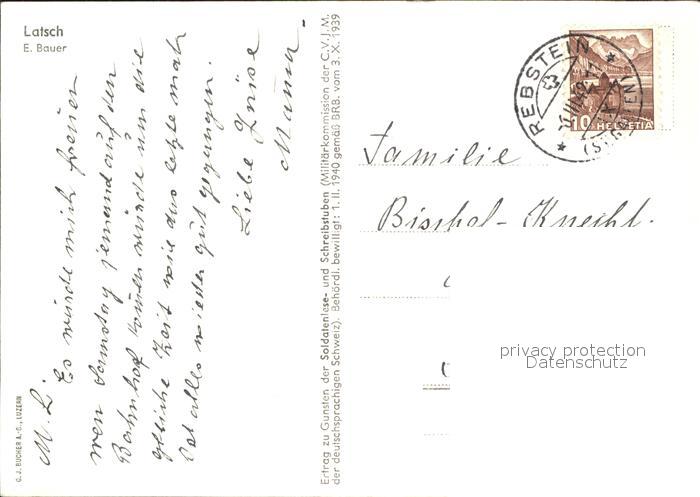 Latsch
E. Bauer
M. L.
Es würde mich freuen
wen Samstag jemand auf den
Bahnhof komen würde um die
gleiche Zeit wie das letzte mal
Hat alles wieder gut gegangen.
Liebe Grüse
Mama.
C. J. BUCHER A.-G., LUZERN
Ertrag zu Gunsten der Soldatenlese- und Schreibstuben (Militärkommission der C.V.J.M.
der deutschsprachigen Schweiz). Behördl. bewilligt: 1. II. 1940 gemäß BRB. vom 3. X. 1939
REBSTEIN
(ST. GALLEN)
10 HELVETIA
Familie
Bischof-Knecht.
privacy protection
Datenschutz